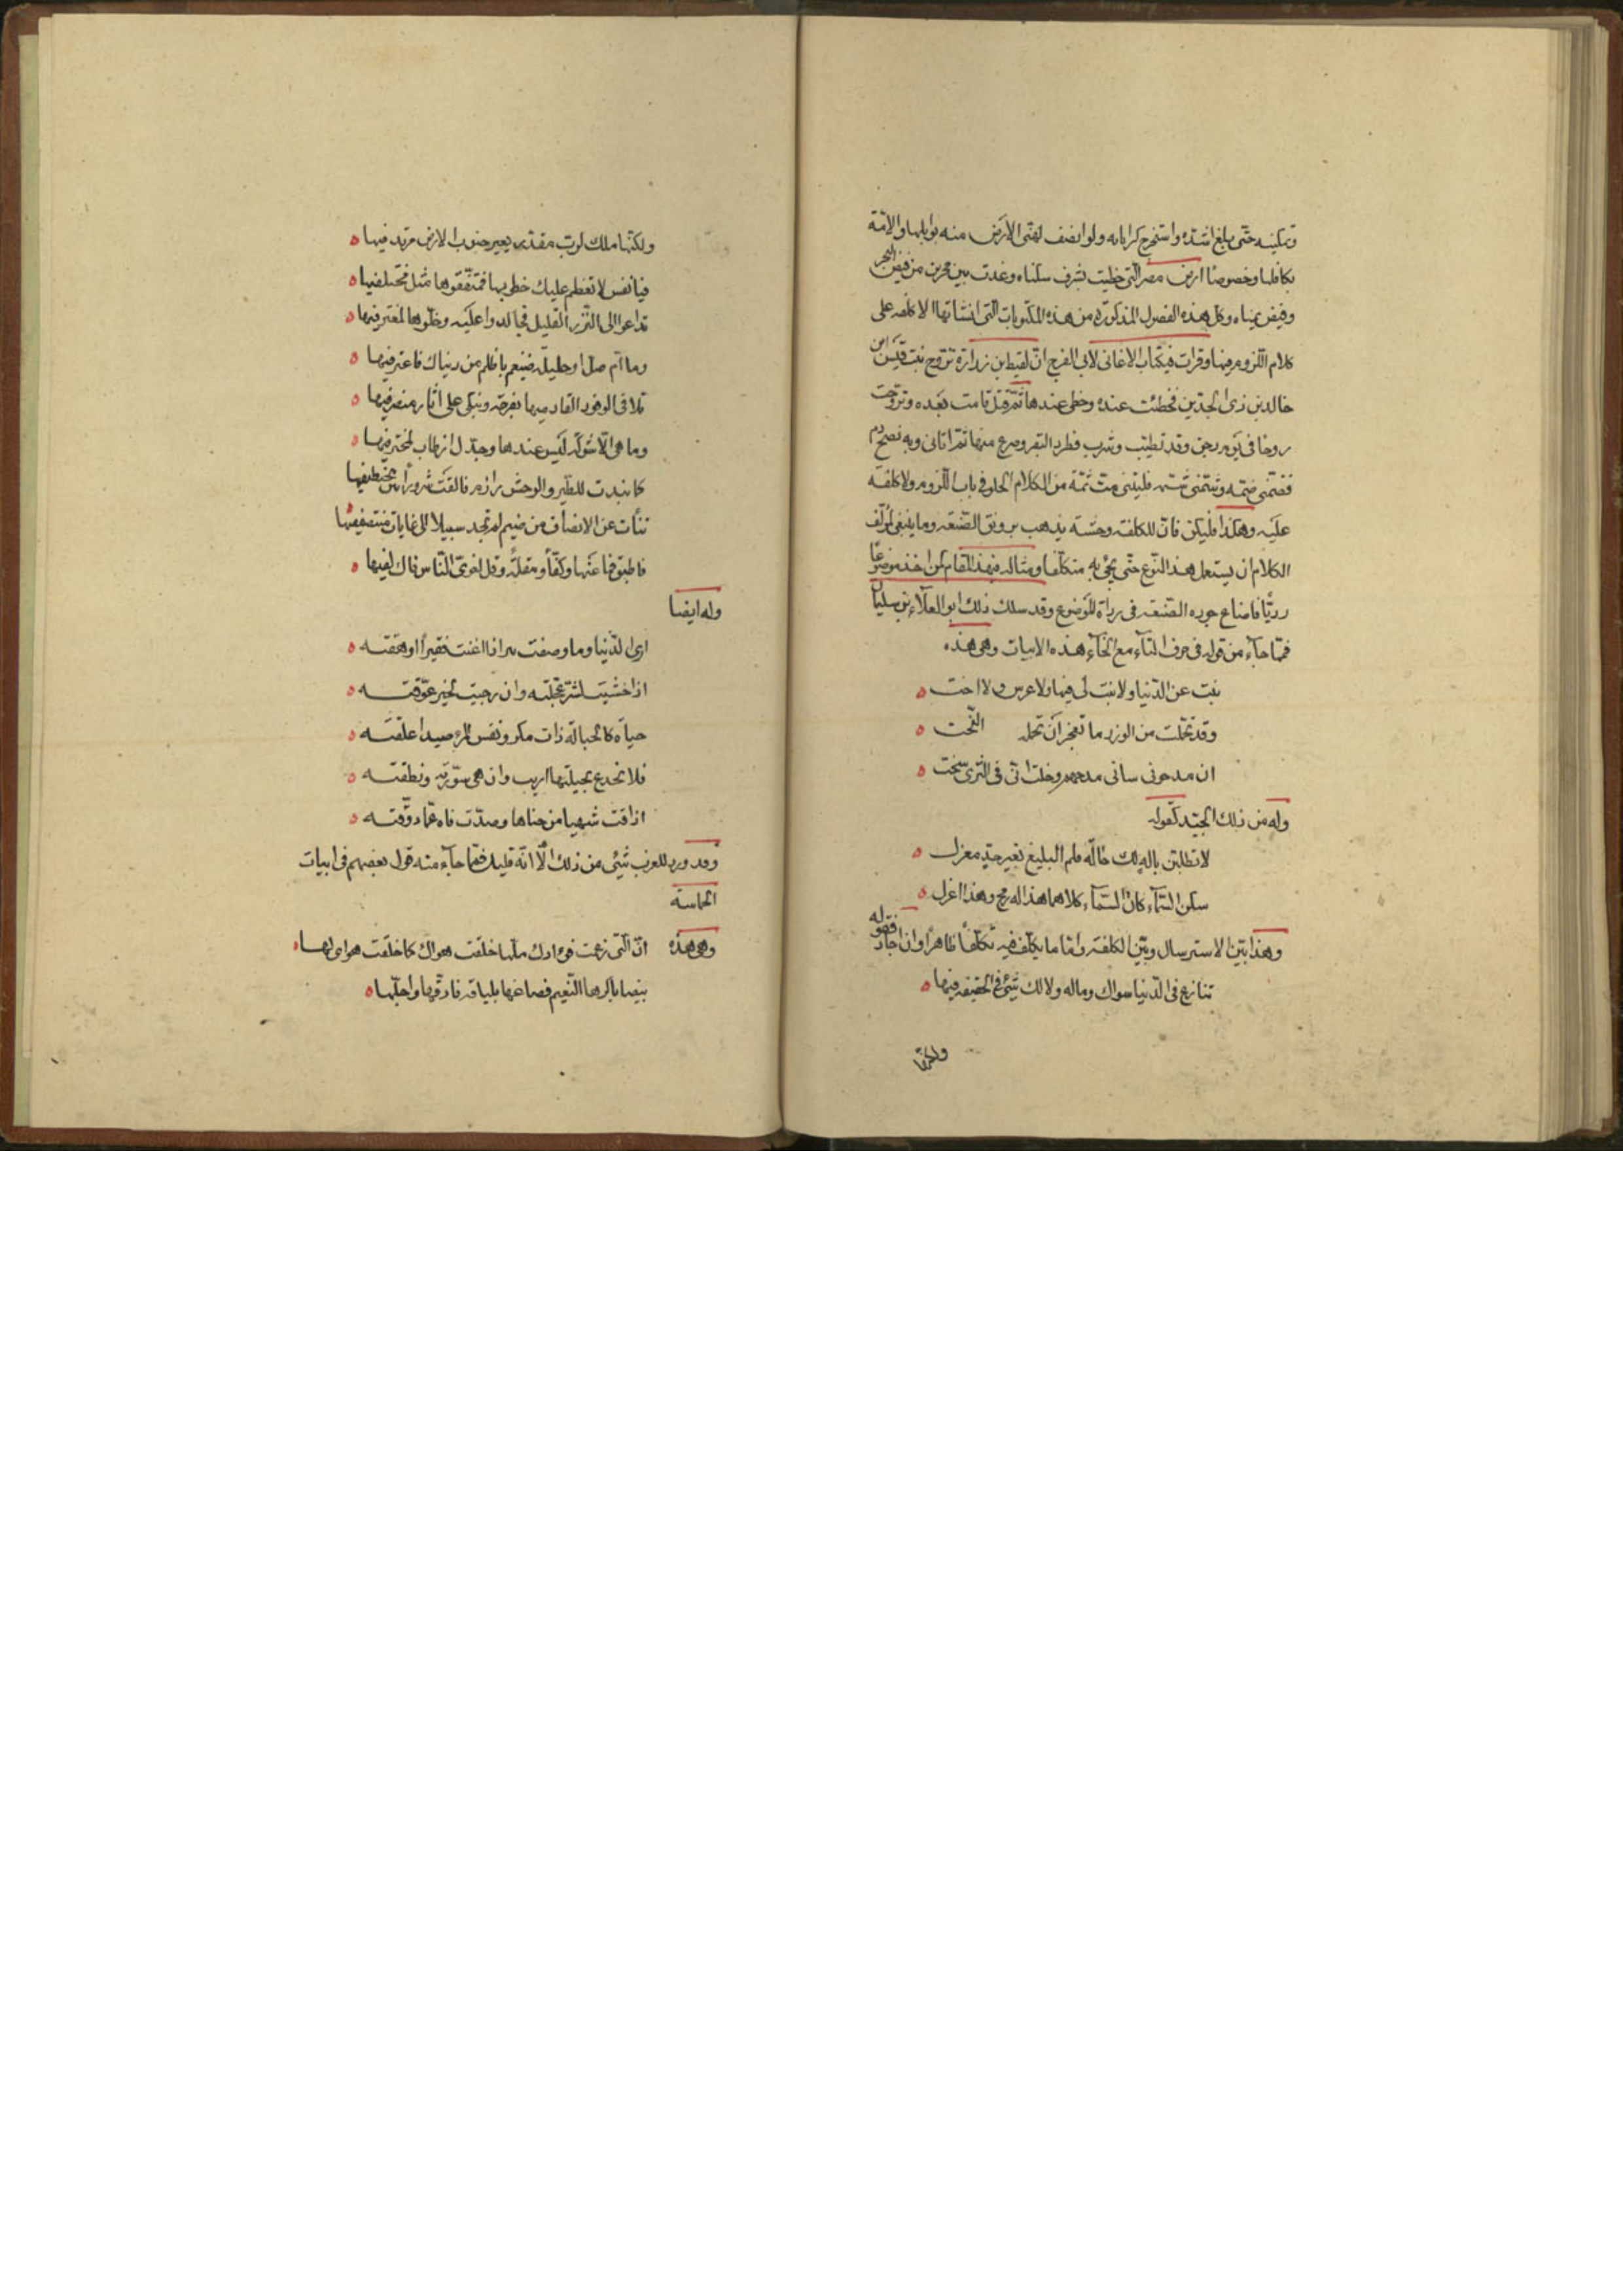 وتمكينه حتى بلغ اشده واستخرج كرايابه ولو انصف لغنى الارض منه بوابلها والامة
بكافلها وخصوصا ارض مصر التى حظيت بشرف سكناه وغدت بين بحرين من فيض البحر
وفيض يمناه وكل هذه الفصول المذكورة من هذه المكتوبات التى انشاتها لا كلفه على
كلام اللزوم فيها وقرات فى كتاب الاغانى لابى الفرج ان لقيط بن زرارة تزوج بنت قيس ابن
خالد بن ذى الجدين فحظيت عنده وحظى عندها ثم قتل فامت بعده وتزوجت
زوجا فى يوم دجن وقد تطيب وشرب فطرد البقر وصرع منها ثم اتانى وبه نضح دم
فضمنى ضمه وشمنى شمه فليتنى مت ثمة من الكلام الحلو فى باب اللزوم ولا كلفة
عليه وهكذا فليكن فان الكلفة وحشة يذهب برونق الصنعه وما ينبغى لمولف
الكلام ان يستعمل هذا النوع حتى يجئ به متكلفا ومثاله فى هذا المقام كمن اخذ موضوعا
رديا فاضاع جوده الصنعه فى رداة الموضوع وقد سلك ذلك ابو العلآء بن سليمان
فمما جآء من قوله فى حرف التآء مع الخآء هذه الابيات وهى هذه
بنت عن الدنيا ولا بنت لى فيها ولا عرس ولا اخت
وقد تحملت من الوزر ما تعجز ان تحمله البخت
ان مدحونى سانى مدحهم وخلت انى فى الثرى سخت
وله من ذلك الجيد كقوله
لا تطلبن بالة لك حالة قلم البليغ بغير جد مغزل
سكن السمآء كان السمآء كلاهما هذا له رمح وهذا اعزل
وهذا بين الاسترسال وبين الكلفة واما ما يكلف فيه تكلفا ظاهرا وان اجاد فقوله
تنازع فى الدنيا سواك وماله ولا لك شئ فى الحقيقه فيها
ولكنها
ولكنها ملك لرب مقدر يعير جنوب الارض مرتدفيها
فيا نفس لا تعظم عليك خطوبها فمتفقوها مثل مختلفيها
تداعوا الى النزر القليل فجالدوا عليه وخلوها لمغترفيها
وما ام صل او حليلة ضيغم باظلم من دنياك فاعترفيها
تلاقى الوفود القادميها بفرحة وتبكى على اثار منصرفيها
وما هى الا شوكة ليس عندها وجدك ارطاب لمخترفيها
كما نبذت للطير والوحش رازم فالقت شرورا بين مختطفيها
تنات عن الانصاف من ضيم لم تجد سبيلا الى غايات منتصفيها
فاطبق فما عنها وكفا ومقلة وقل لغوى الناس فاك لفيها
وله ايضا
ارى الدنيا وما وصفت ببر اذا اغنت فقيرا ارهقته
اذا خشيت لشر عجلته وان رجيت لخير عوقته
حياة كالحبالة ذات مكر ونفس المرء صيدا علقته
فلا تخدع بحيلتها اريب وان هى سورته ونطقته
اذاقت شهيا من جناها وصدت فاه عما ذوقته
وقد ورد للعرب شئ من ذلك الا انه قليل فمما جآء منه قول بعضهم فى ابيات
الحماسة
وهى هذه ان التى زعمت فوادك ملها خلقت هواك كما خلقت هوى لها
بيضا باكرها النعيم فصاغها بلباقه فادقها واجلها